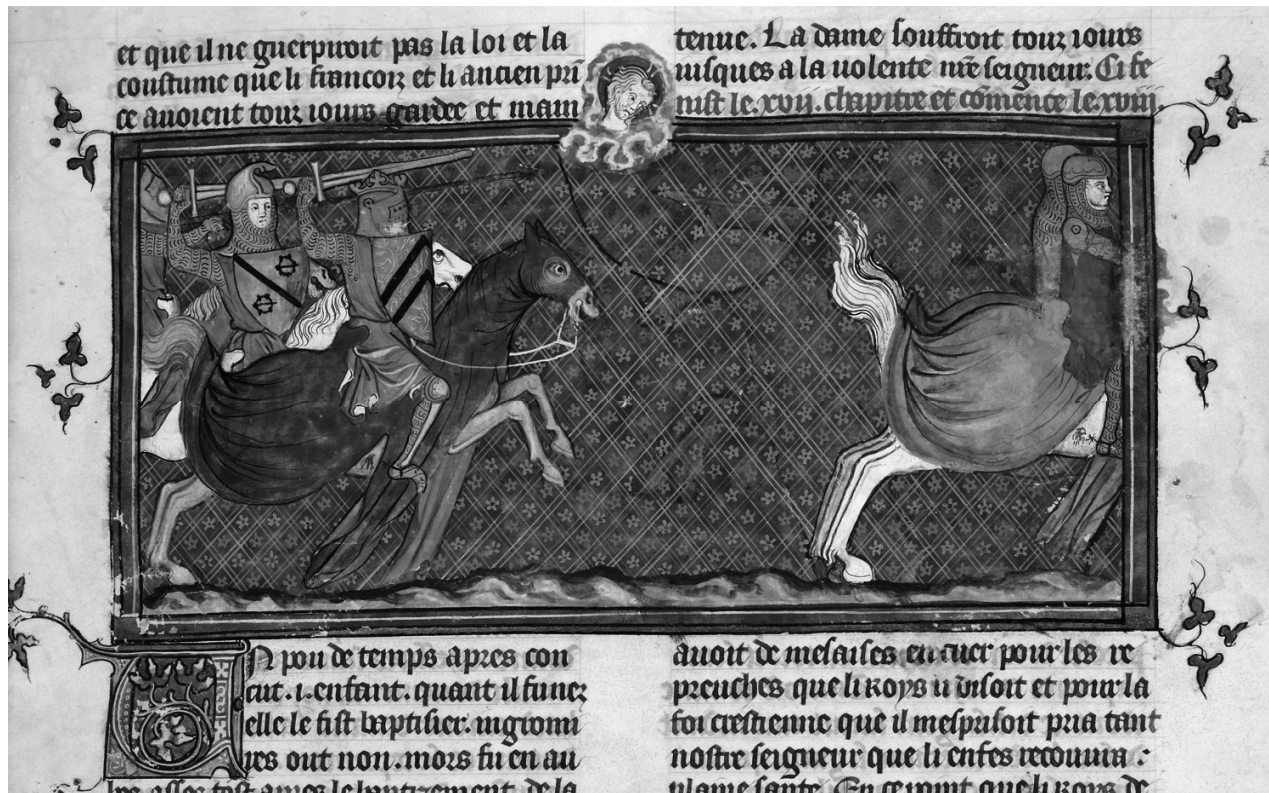 et que il ne guerpiroit pas la loi et la
coustume que li francoiz et li ancien pri
ce avoient touz iours gardee et main
tenue. La dame souffroit touz iours
iusques a la uolente nre seigneur. Ci fe
nist le .xvij. chapitre et comence le .xviij.
N pou de temps apres con
cut .i. enfant. quant il fu nez
elle le fist baptisier. ingromi
res out non. mors fu en au
bes assez tost apres le baptizement. de la
avoit de mesaises en cuer pour les re
preuches que li roys li disoit et pour la
foi crestienne que il mesprisoit pria tant
nostre seigneur que li enfes recouvra :
plaine sante. En ce point que li roys de